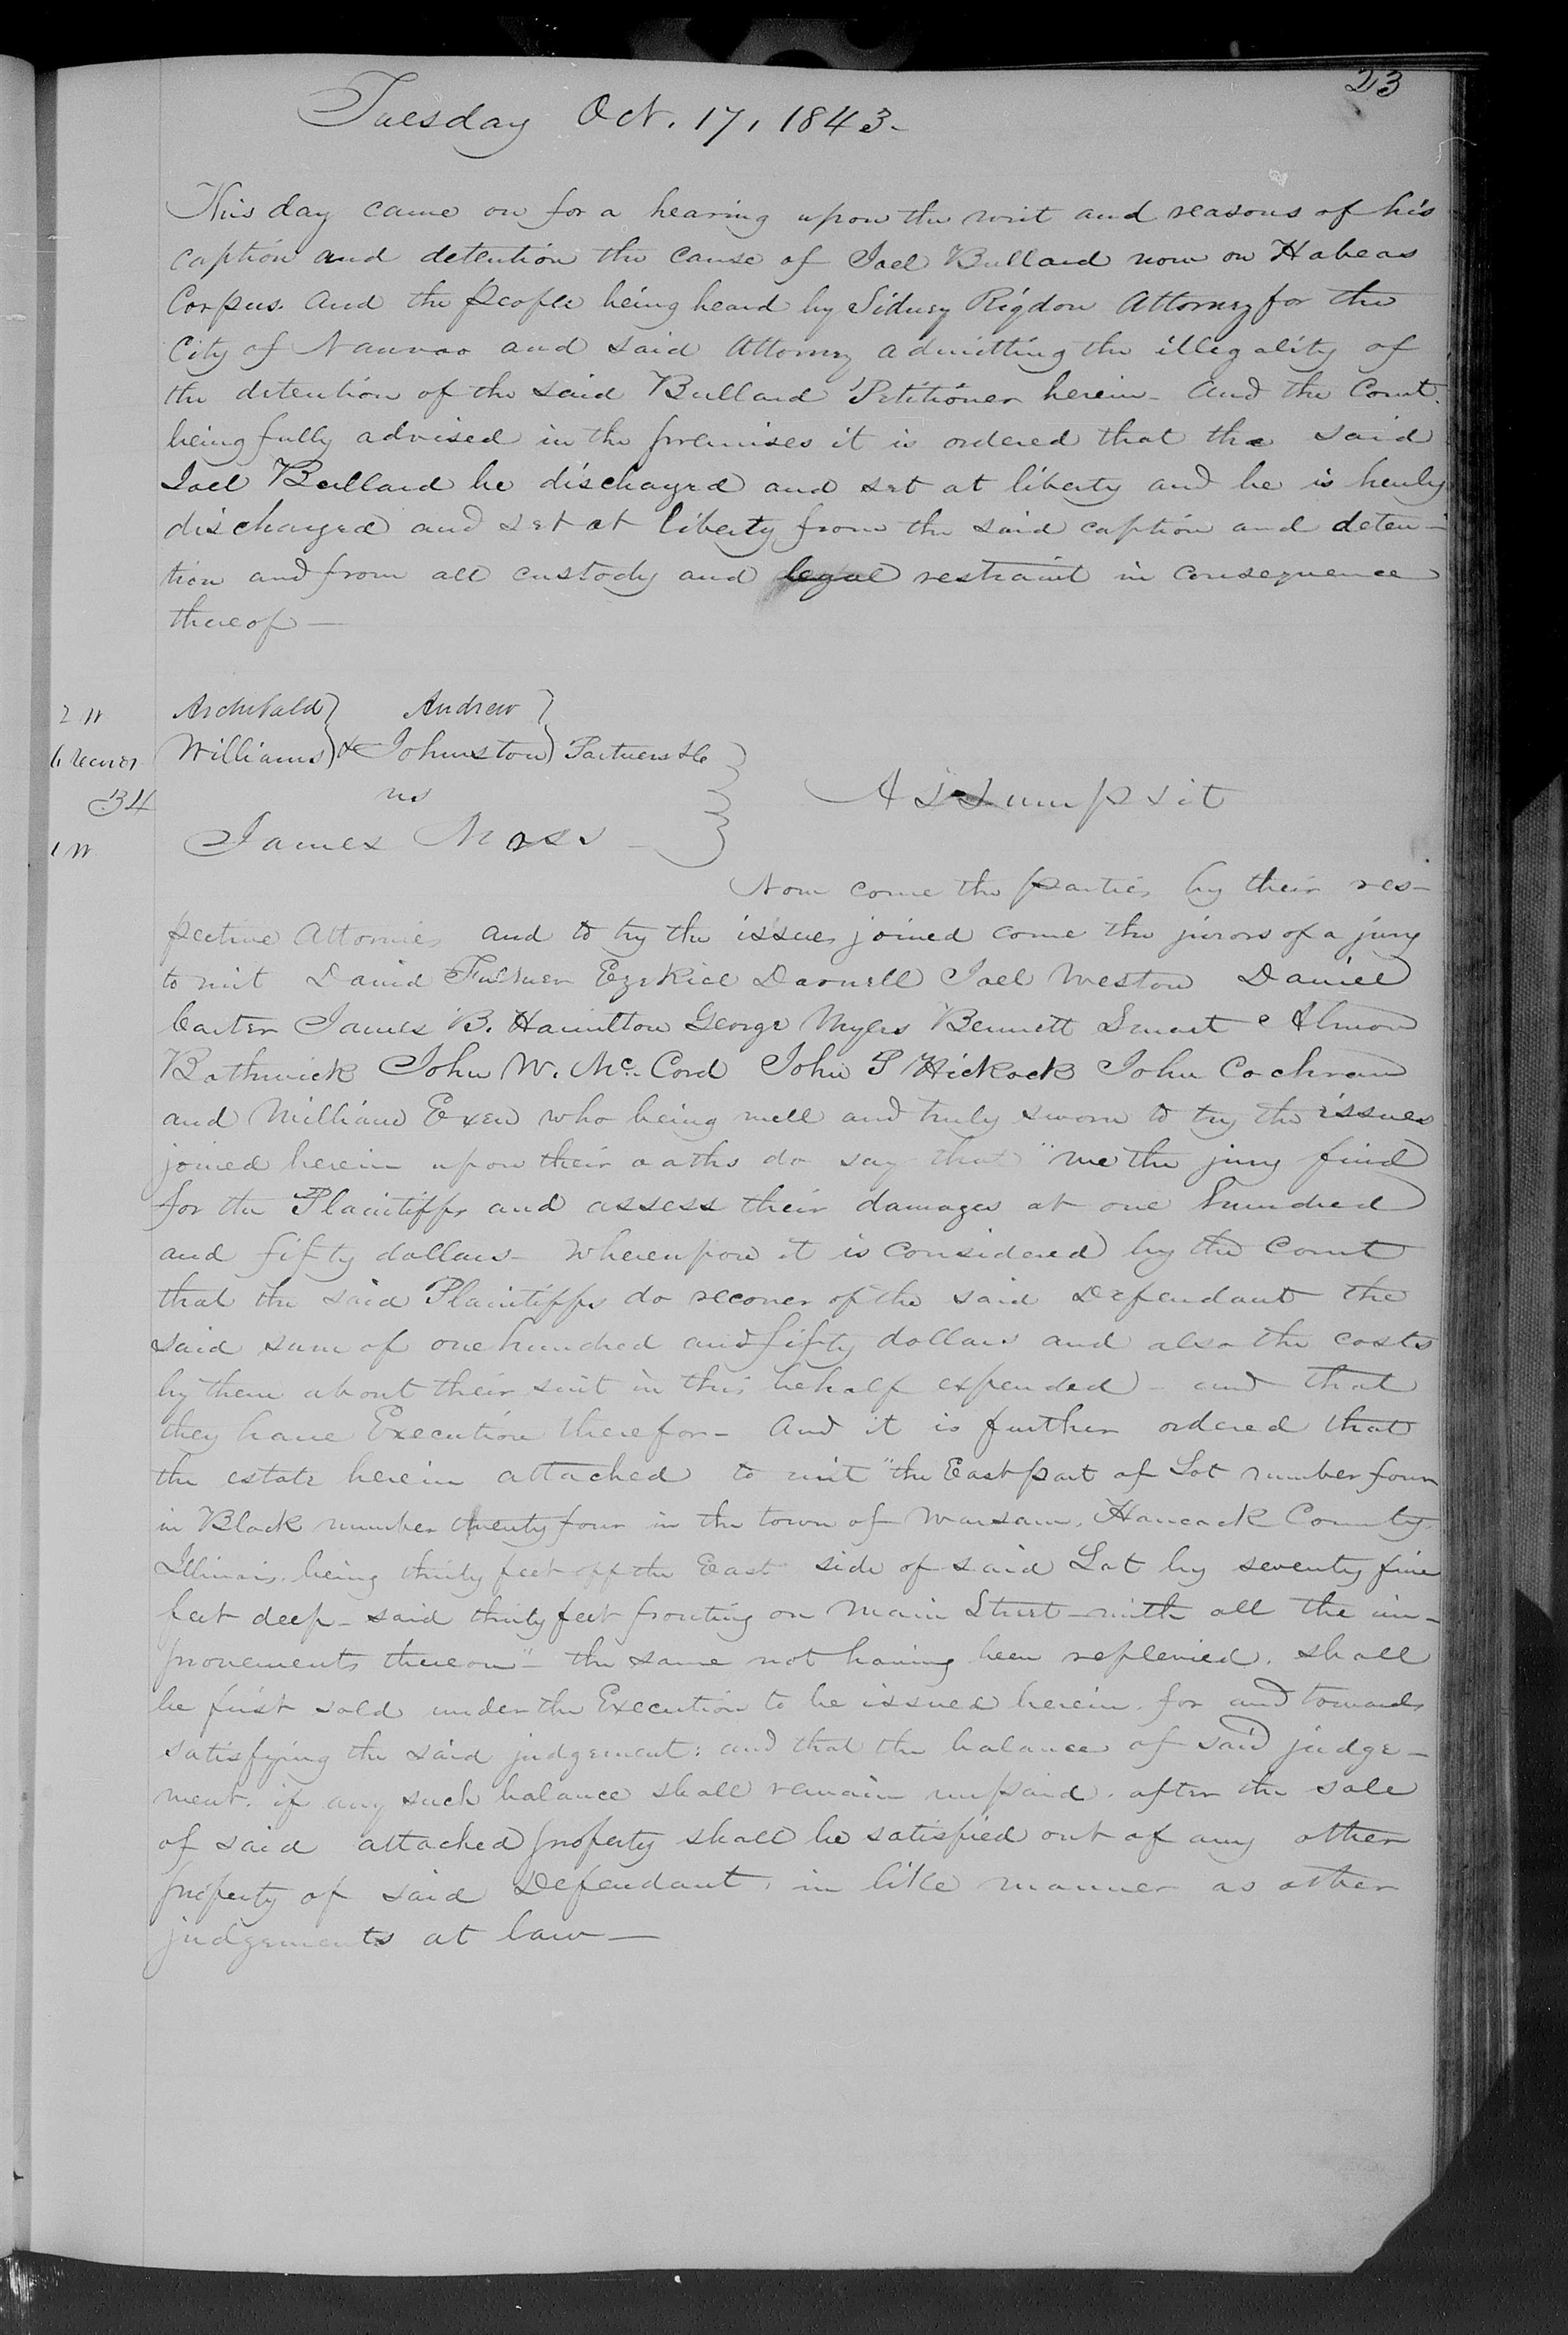 23
Tuesday Oct. 17, 1843-
This day came on for a hearing upon the writ and reasons of his
caption and detention the cause of Joel Bullard now on Habeas
Corpus. And the People being heard by Sidney Rigdon Attorney for the
City of Nauvoo and said Attorney admitting the illegality of
the detention of the said Bullard Petitioner herein - And the Court
being fully advised in the premises it is ordered that the said
Joel Bullard be discharged and set at liberty and he is hereby
discharged and set at liberty from the said caption and deten-
tion and from all custody and legal restraint in consequence
thereof —
2 W Archibald } Andrew }
Williams } & Johnston } Partners &c
34 vs Assumpsit
1 W James Moss -
Now come the parties by their res-
pective Attornies and to try the issues joined come the jurors of a jury
to wit David Ezekiel Darnell Joel Weston Daniel
Carter James B. Hamilton George Myers Bennett Smart Almon
Bathwick John W. Mc. Cord John P Hickock John Cochran
and William Exew who being well and truly sworn to try the issues
joined herein upon their oaths do say that "we the jury find
for the Plaintiffs and assess their damages at one hundred
and fifty dollars - Whereupon it is considered by the Court
that the said Plaintiffs do recover of the said Defendant the
said sum of one hundred and fifty dollars and also the costs
by them about their suit in this behalf expended - and that
they have Execution therefor - And it is further ordered that
the estate herein attached to wit "the East part of Lot number four
in Block number twenty four in the town of Warsaw, Hancock County
Illinois, being thirty feet off the East side of said Lot by seventy five
feet deep - said thirty feet fronting on Main Street - with all the im-
provements thereon" - the same not having been replevied, shall
be first sold under the Execution to be issued herein, for and towards
satisfying the said judgement: and that the balance of said judge-
ment, if any such balance shall remain unpaid, after the sale
of said attached property shall be satisfied out of any other
property of said Defendant, in like manner as other
judgements at law —